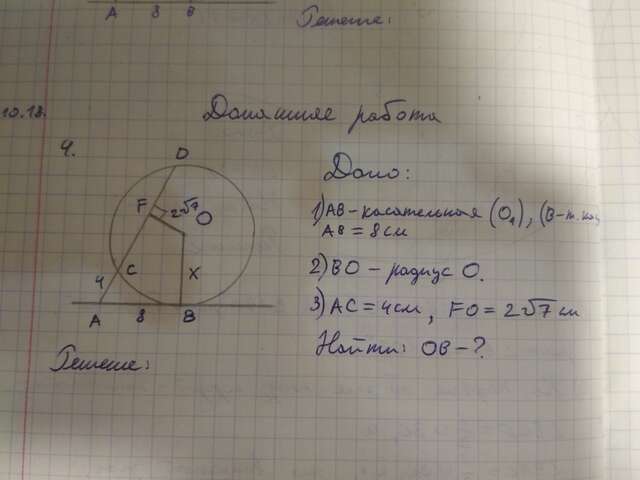 A 8 B
Решение:
10.13.
Домашняя работа
4.
D
F
2√7
O
C
X
4
A
8
B
Дано:
1) AB - касательная (O₁), (B - т.
AB = 8 см
2) BO - радиус O.
3) AC = 4 см, FO = 2√7 см
Найти: OB - ?
Решение: